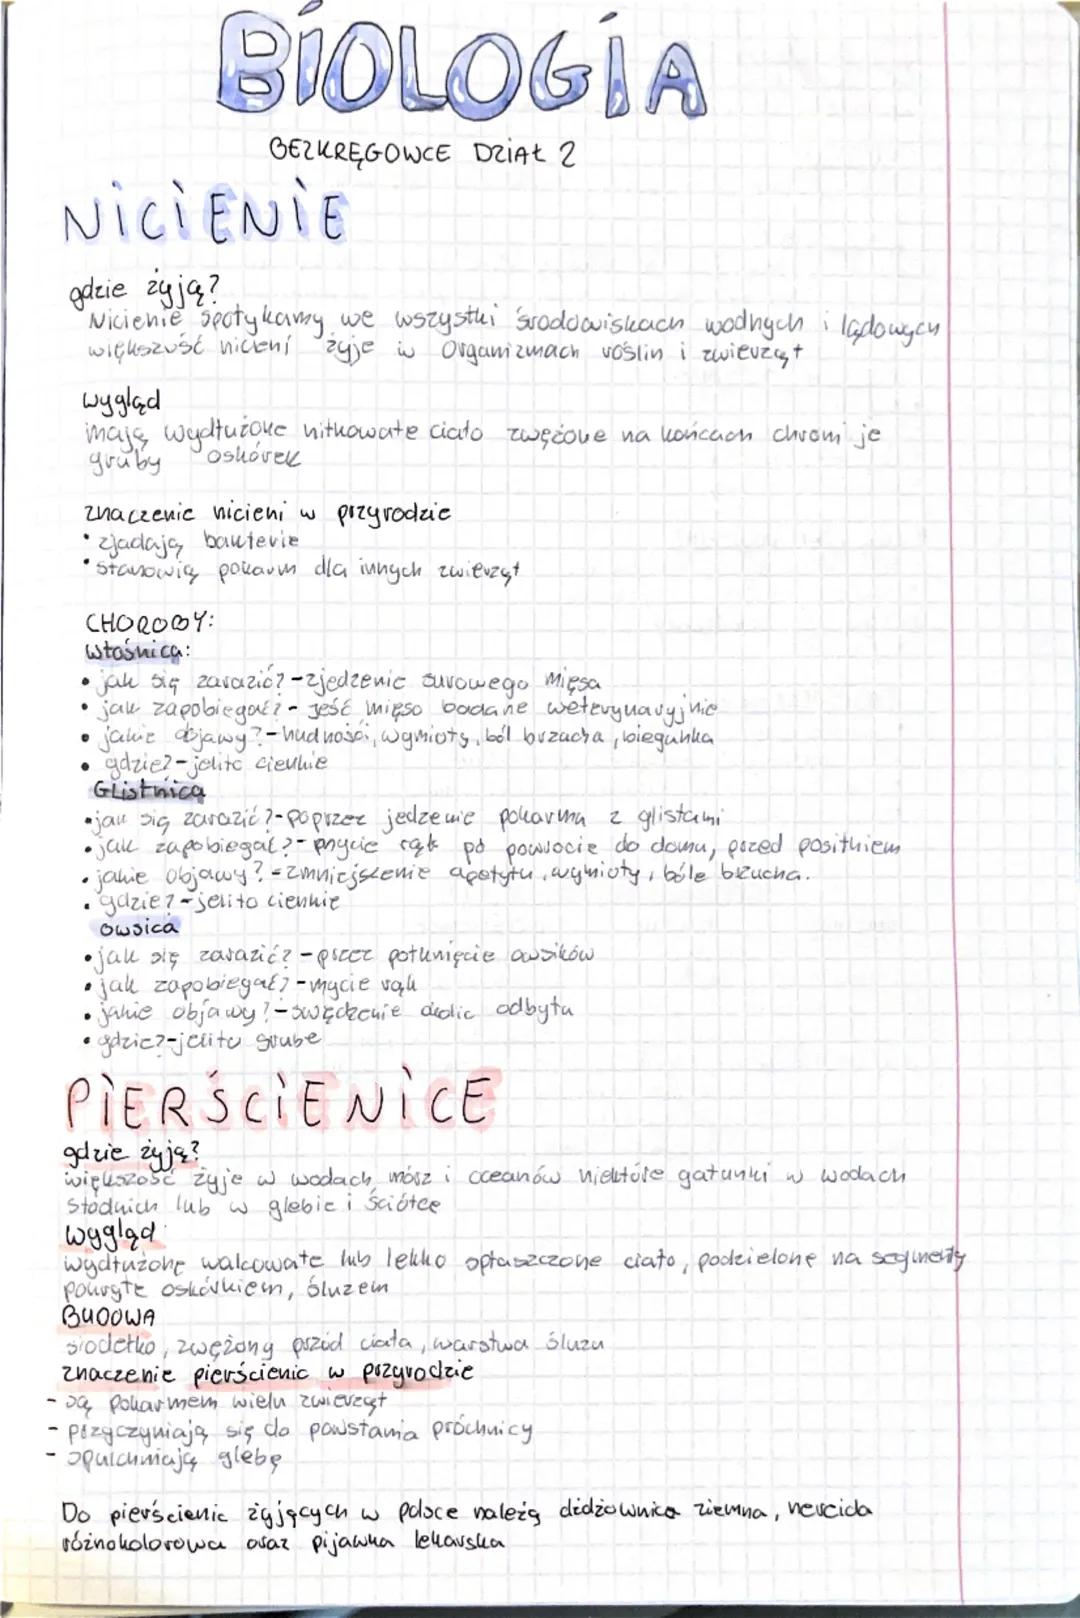 BIOLOGIA
BEZKRĘGOWCE DZIAŁ 2
NICIENIE
gdzie żyją?
Nicienie spotykamy we wszystki środowiskach wodnych i lądowych
większość nicieni żyje w organizmach roślin i zwierząt
wygląd
mają wydłużone nitkowate ciało zwężone na końcach chroni je
gruby oskórek
znaczenie nicieni w przyrodzie
• zjadają bakterie
• stanowią pokarm dla innych zwierząt
CHOROBY:
włośnica:
• jak się zarazić? - zjedzenie surowego mięsa
• jak zapobiegać? - jeść mięso badane weterynaryjnie
• jakie objawy? - nudności, wymioty, ból brzucha, biegunka
• gdzie? - jelito cienkie
Glistnica
• jak się zarazić? - poprzez jedzenie pokarmu z glistami
• jak zapobiegać? - mycie rąk po powrocie do domu, przed posiłkiem
• jakie objawy? - zmniejszenie apetytu, wymioty, bóle brzucha.
• gdzie? - jelito cienkie
owsica
• jak się zarazić? - przez połknięcie owsików
• jak zapobiegać? - mycie rąk
• jakie objawy? - swędzenie okolic odbytu
• gdzie? - jelito grube
PIERŚCIENICE
gdzie żyją?
większość żyje w wodach mórz i oceanów niektóre gatunki w wodach
słodkich lub w glebie i ściółce
wygląd
wydłużone walcowate lub lekko spłaszczone ciało, podzielone na segmenty
pokryte oskórkiem, śluzem
BUDOWA
siodełko, zwężony przód ciała, warstwa śluzu
znaczenie pierścienic w przyrodzie
- są pokarmem wielu zwierząt
- przyczyniają się do powstania próchnicy
- spulchniają glebę
Do pierścienic żyjących w polsce należą dżdżownica ziemna, nereida
różnokolorowa oraz pijawka lekarska